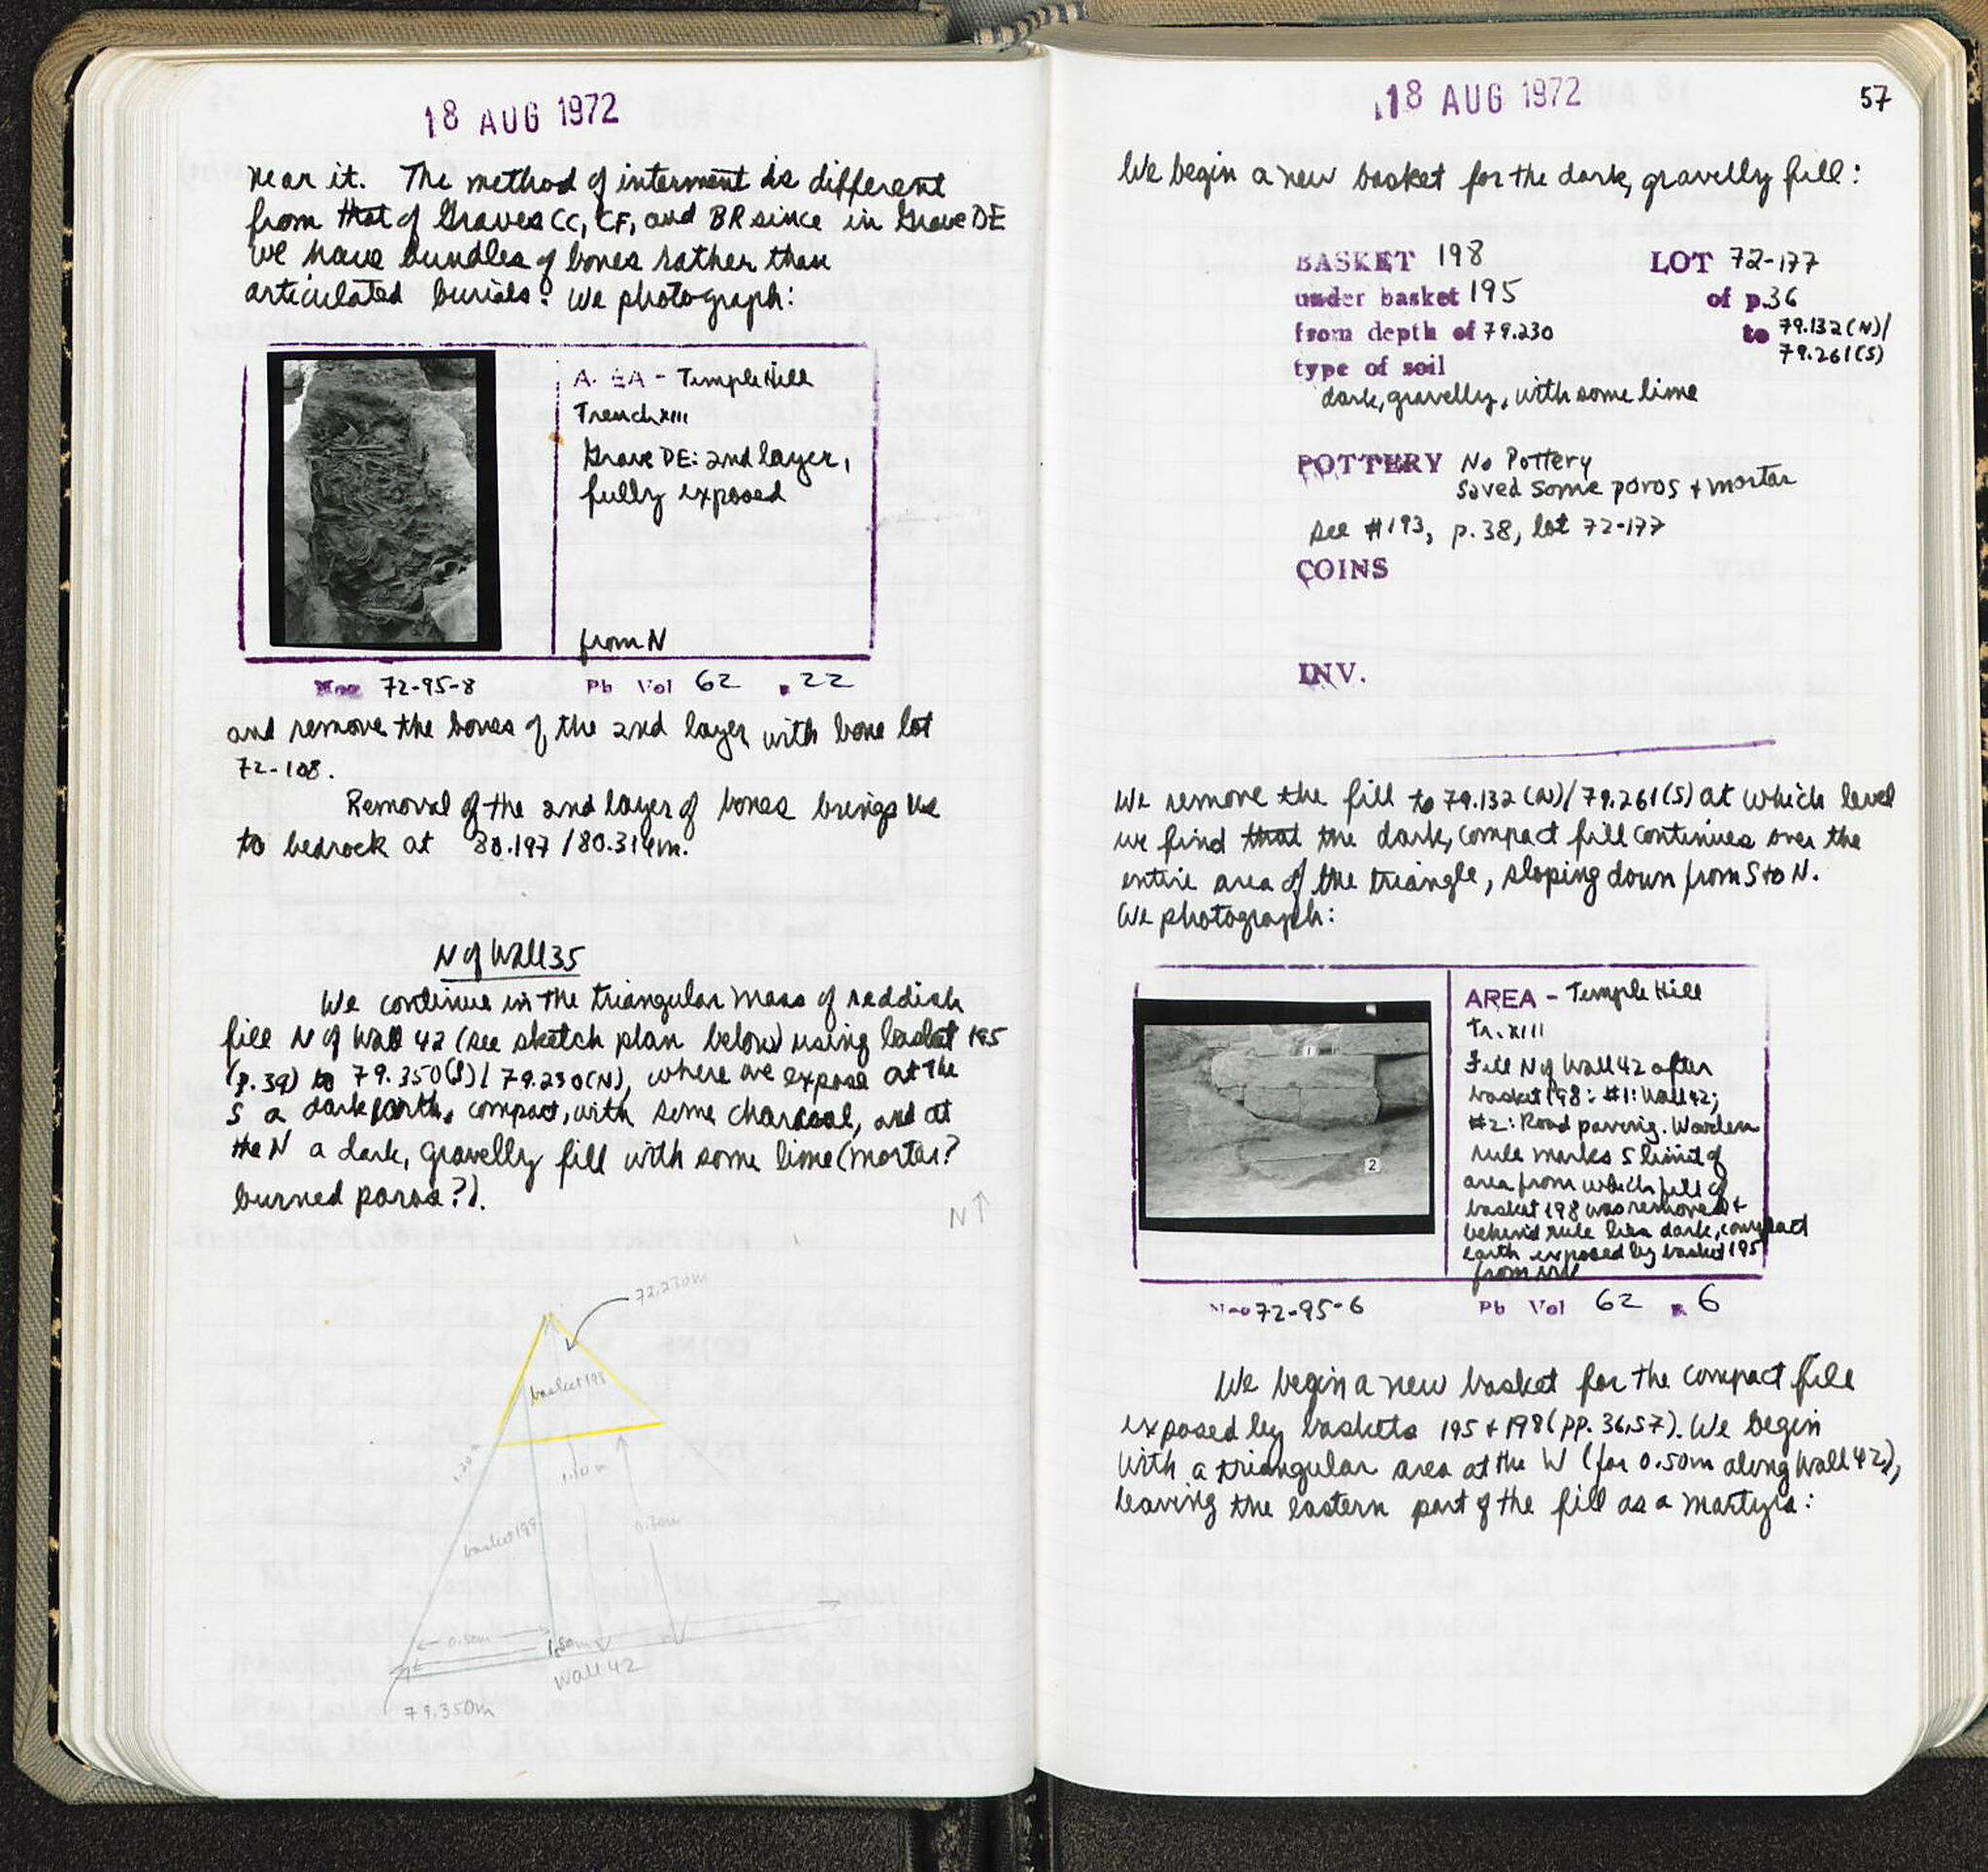 18 AUG 1972
near it. The method of interment is different
from that of Graves CC, CF, and BR since in Grave DE
we have bundles of bones rather than
articulated burials. We photograph:
A. EA - Temple Hill
Trench XIII
Grave DE: 2nd layer,
fully exposed
from N
Neg 72-95-8 Pb Vol 62 p. 22
and remove the bones of the 2nd layer with bone lot
72-108.
Removal of the 2nd layer of bones brings us
to bedrock at 80.197 / 80.314m.
N of Wall 35
We continue in the triangular mass of reddish
fill N of Wall 42 (see sketch plan below) using basket 195
(p.39) to 79.350(S) / 79.230(N), where we expose at the
S a dark earth, compact, with some charcoal, and at
the N a dark, gravelly fill with some lime (mortar?
burned poros?).
N ↑
72.230m
basket 198
1.20
1.10 m
basket 199
0.70m
0.50m
1.50m
Wall 42
79.350m
18 AUG 1972
57
We begin a new basket for the dark, gravelly fill:
BASKET 198 LOT 72-177
under basket 195 of p.36
from depth of 79.230 to 79.132(N)/
79.261(S)
type of soil
dark, gravelly, with some lime
POTTERY No Pottery
Saved some poros + mortar
see #193, p.38, lot 72-177
COINS
INV.
We remove the fill to 79.132(N)/79.261(S) at which level
we find that the dark, compact fill continues over the
entire area of the triangle, sloping down from S to N.
We photograph:
1
2
AREA - Temple Hill
Tr. XIII
Fill N of Wall 42 after
basket 198: #1: Wall 42;
#2: Road paving. Wooden
rule marks S limit of
area from which fill of
basket 198 was removed +
behind rule lies dark, compact
earth exposed by basket 195
from
Neg 72-95-6 Pb Vol 62 p. 6
We begin a new basket for the compact fill
exposed by baskets 195 + 198 (pp. 36,57). We begin
with a triangular area at the W (for 0.50m along Wall 42),
leaving the eastern part of the fill as a martyra: